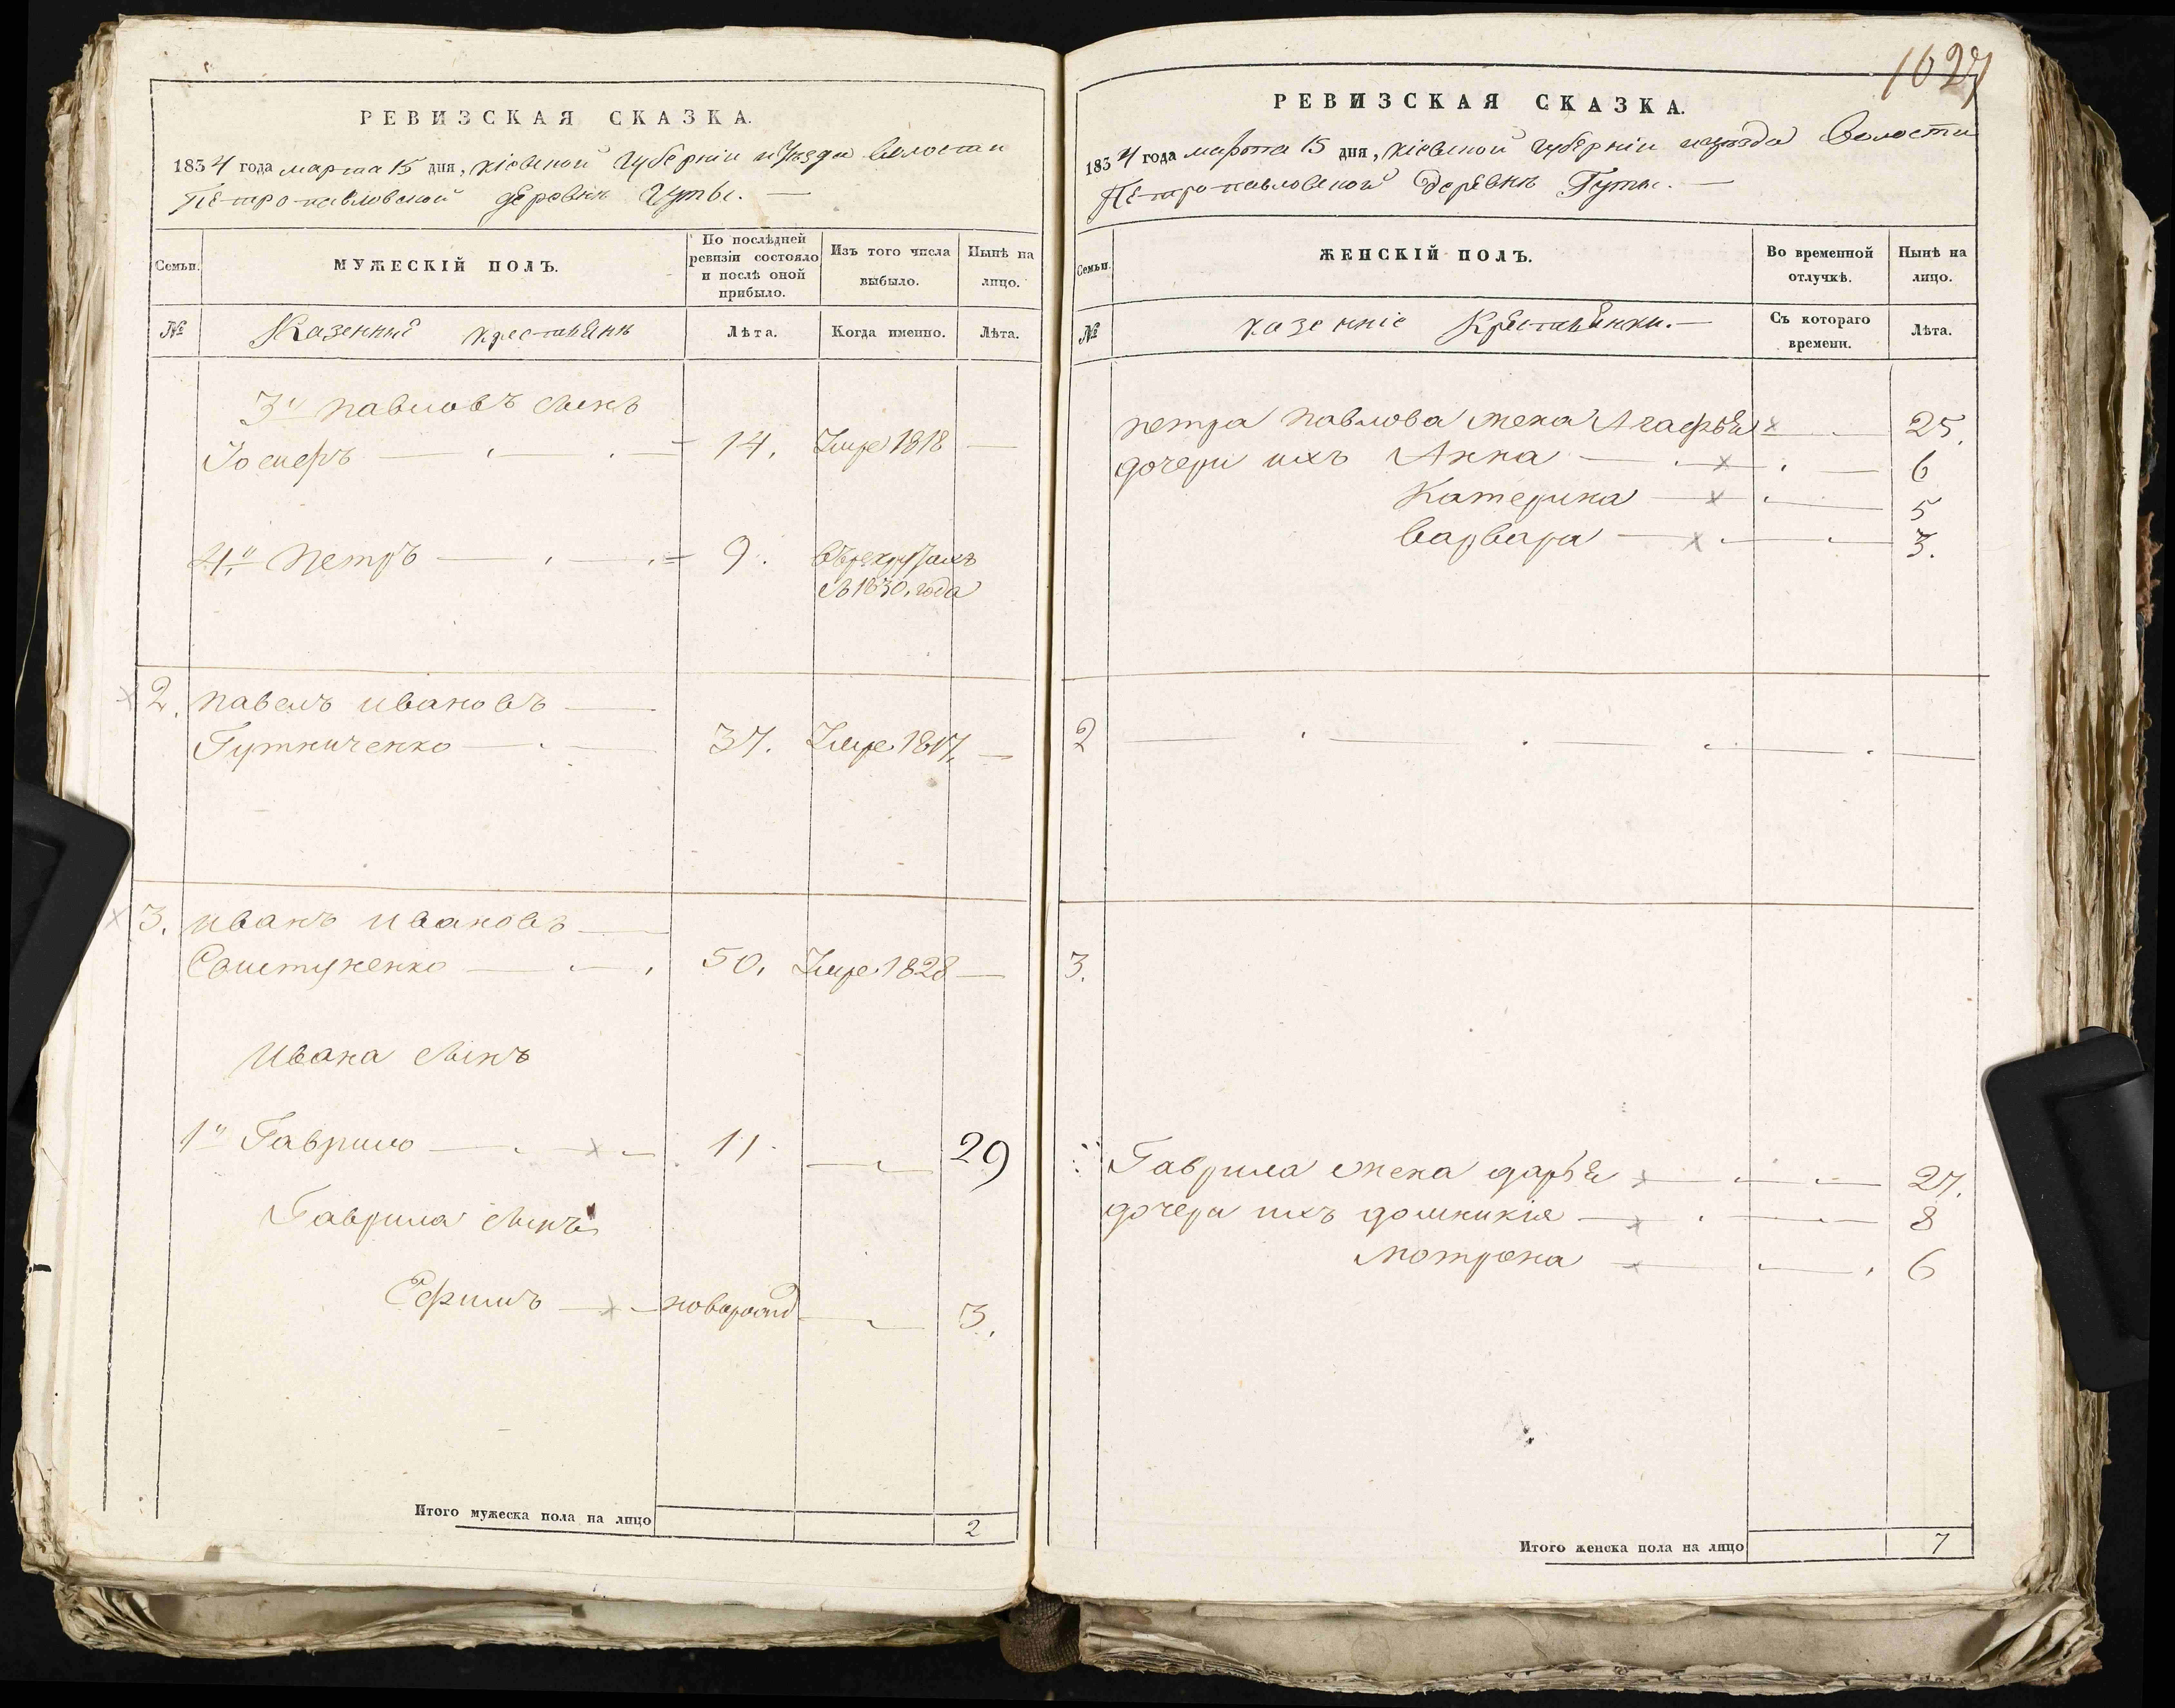 РЕВИЗСКАЯ СКАЗКА.
1834 года марта 15 дня, Кіевской Губерніи и Уѣзда Волости
Петропавловской деревнѣ Гуты. —
Семьи.
МУЖЕСКІЙ ПОЛЪ.
По послѣдней
ревизіи состояло
и послѣ оной
прибыло.
Изъ того числа
выбыло.
Нынѣ на
лицо.
№
Казенніе крестьянѣ
Лѣта.
Когда именно.
Лѣта.
3й Павловъ сынъ
Іосифъ — 14. Умре 1818 —
4й Петръ — 9. Въ рекрутахъ
съ 1830. года
2. Павелъ Ивановъ —
Гутниченко — 37. Умре 1817. —
3. Иванъ Ивановъ —
50. Умре 1828 —
Ивана сынъ
1й Гаврило — 11 — 29
Гаврила сынъ
Ефимъ — новорожд — 3.
Итого мужеска пола на лицо
2
1627
РЕВИЗСКАЯ СКАЗКА.
1834 года марта 15 дня, Кіевской Губерніи и уѣзда Волости
Петропавловской деревнѣ Гуты. —
Семьи.
ЖЕНСКІЙ ПОЛЪ.
Во временной
отлучкѣ.
Нынѣ на
лицо.
№
Казенніе Крестьянки. —
Съ котораго
времени.
Лѣта.
Петра Павлова жена Агафья — 25.
дочери ихъ Анна — 6
Катерина — 5
Варвара — 3.
2 —
3.
Гаврила жена Дарья — 27.
дочера ихъ Домникія — 8
Мотрона — 6
Итого женска пола на лицо
7